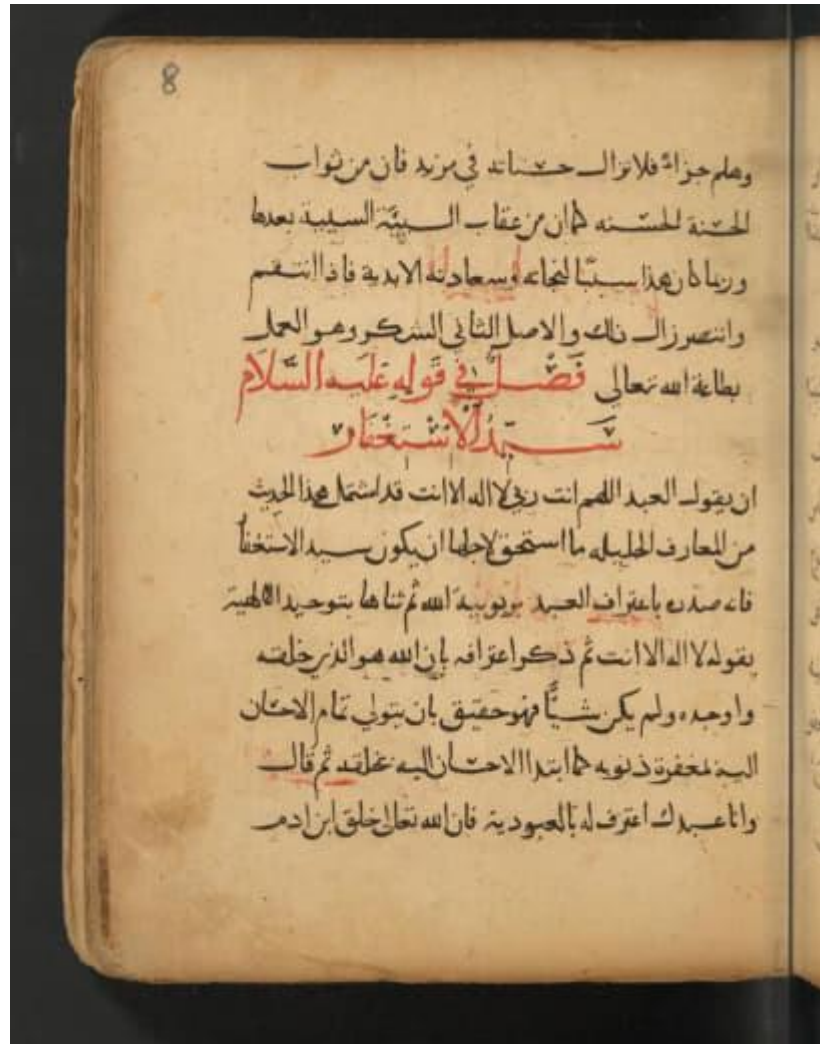 8
وهلم جراً فلا تزال حسناته في مزيد فان من ثواب
الحسنة الحسنه كما ان من عقاب السيئة السيئة بعدها
وربما كان هذا سبباً لنجاته وسعادته الابدية فاذا انتقم
وانتصر زال ذلك والاصل الثاني الشكر وهو العمل
بطاعة الله تعالي فَصْلٌ في قَولِهِ عَلَيهِ السَّلاَم
سَيِّدُ الاسْتغْفَار
ان يقول العبد اللهم انت ربي لا اله الا انت قد اشتمل هذا الحديث
من المعارف الجليله ما استحق لاجلها ان يكون سيد الاستغفا
فانه صدره باعتراف العبد بربوبية الله ثم ثناها بتوحيد الالهية
بقوله لا اله الا انت ثم ذكر اعترافه بان الله هو الذي خلقه
واوجده ولم يكن شيأً فهو حقيق بان يتولي تمام الاحسان
اليه لمغفرة ذنوبه كما ابتدا الاحسان اليه بخلقه ثم قال
وانا عبدك اعترف له بالعبودية فان الله تعالى خلق ابن ادم